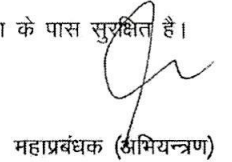 के पास सुरक्षित है।
महाप्रबंधक (अभियन्त्रण)